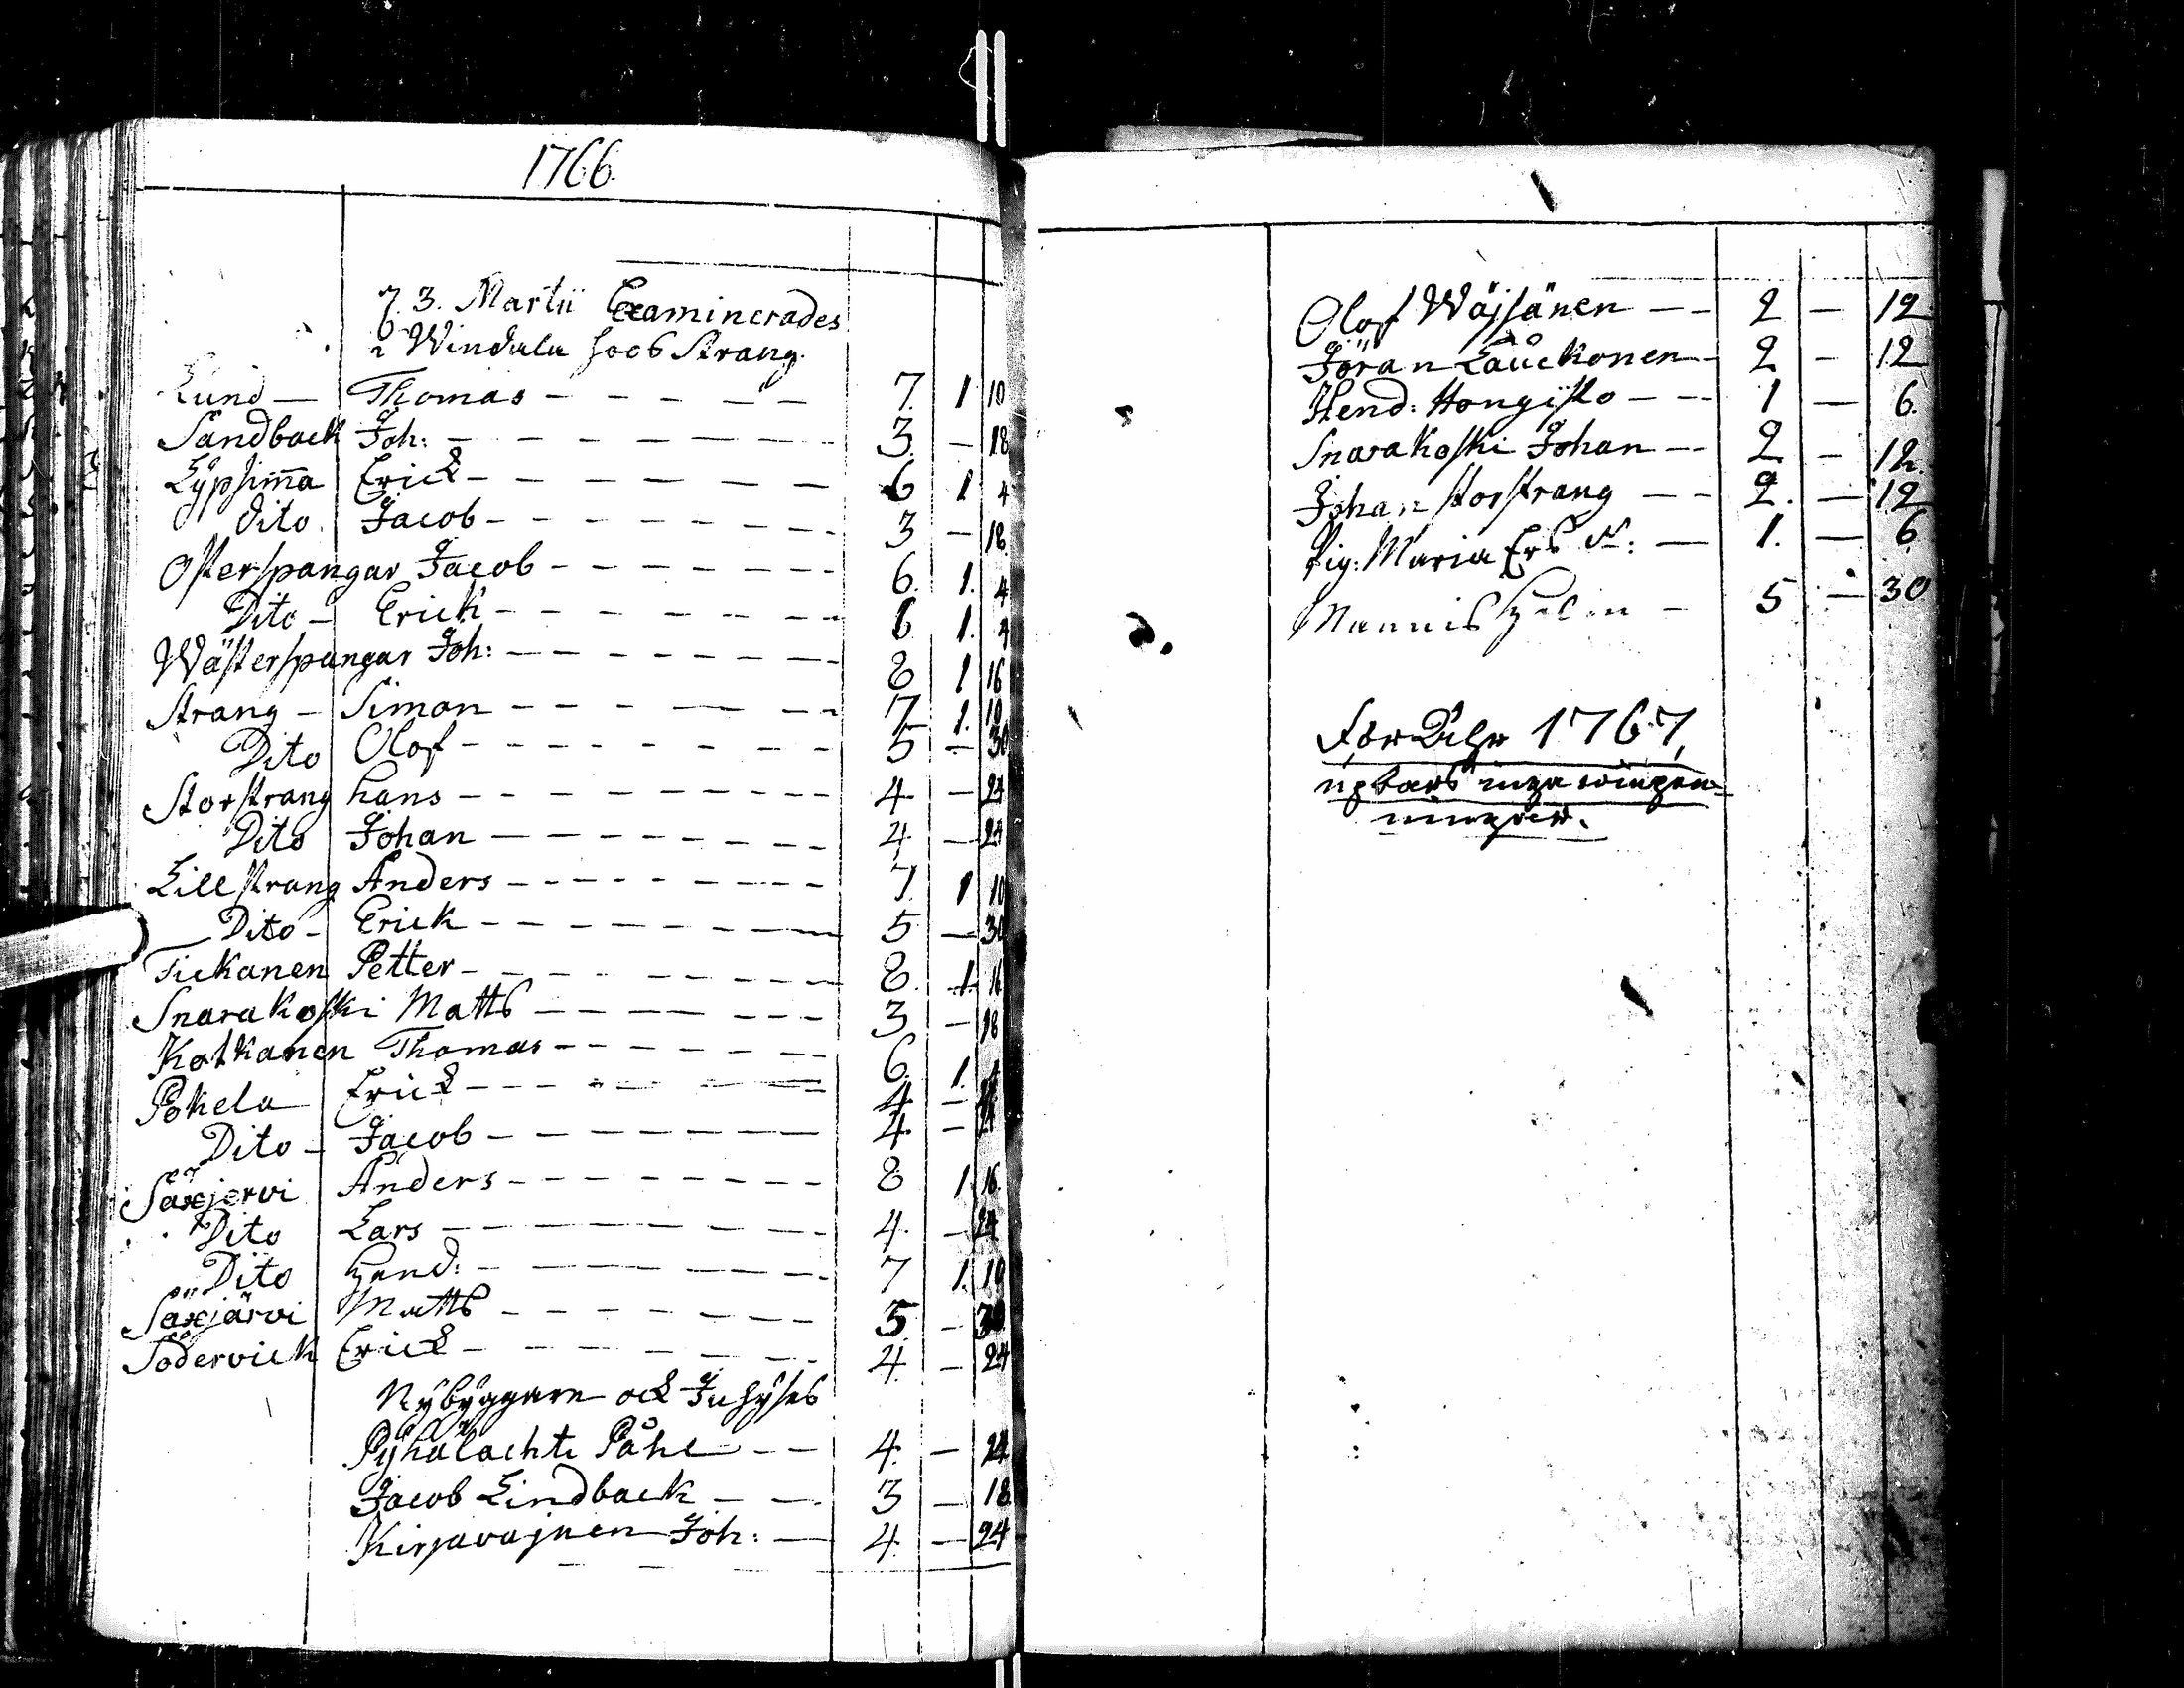 1766.
3. Martii Examinerades
i Windala hoos Strang.
Lund — Thomas - - - - - 7. 1 10
Sandback Joh: - - - - - - 3. — 18
Lypsinna Erick - - - - - - 6 1 4
Dito Jacob - - - - - - - 3 — 18
Österspangar Jacob - - - - - - 6. 1. 4
Dito — Erick - - - - - - - 6 1. 4
Wästerspangar Joh: - - - - - - 8 1 16
Strang — Simon - - - - - - 7. 1. 10
Dito Olof - - - - - - - - 5 — 30
Storstrang Hans - - - - - - - - 4 — 24
Dito Johan - - - - - - - 4 — 24
Lillstrang Anders - - - - - - - - 7. 1 10
Dito - Erick - - - - - - - 5 — 30
Tickanen Petter - - - - - - - 8. 1. 16
Snarakoski Matts - - - - - - 3 — 18
Kotkanen Thomas - - - - - - 6. 1. 4
Pokela Erick - - - - - - - 4 — 24
Dito - Jacob - - - - - - - 4 — 24
Saxjervi Anders - - - - - - - 8 1. 16.
Dito Lars - - - - - - - - 4. — 24
Dito Hend: - - - - - - - 7 1. 10
Säxjärvi Matts - - - - - - 5. — 30
Södervick Erick - - - - - - 4. — 24
Nybyggare ock Inhyses
Pyhälachti Påhl - - 4. — 24
Jacob Lindback - - 3 — 18
Kirjavajnen Joh: — 4. — 24
Olof Wäjsänen - - 2 — 12
Jöran Lauckonen - 2 — 12
Hend: Hongisto - - 1 — 6.
Snarakoski Johan - - 2 — 12.
Johan Storstrang - - 2. — 12
Pig: Maria Ers D: — 1. — 6
5 — 30
För Åhr 1767,
uptars inga